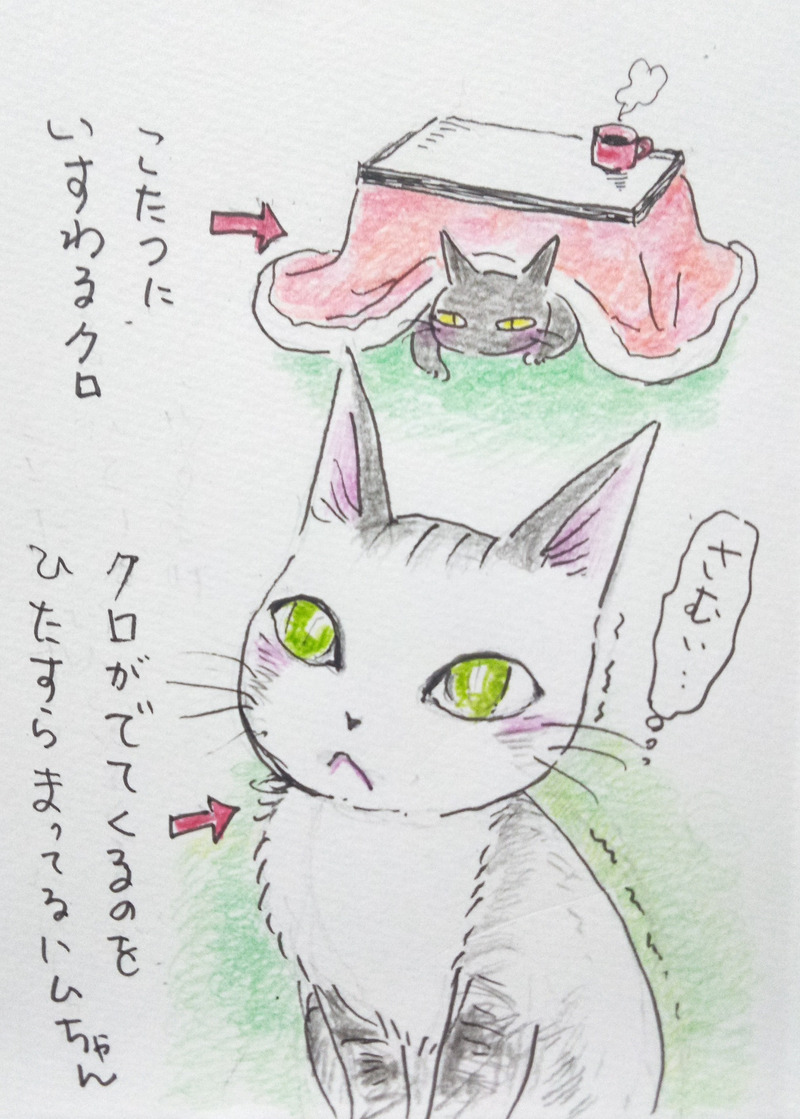 こたつに
いすわるクロ
さむい…
クロがでてくるのを
ひたすらまってるハムちゃん